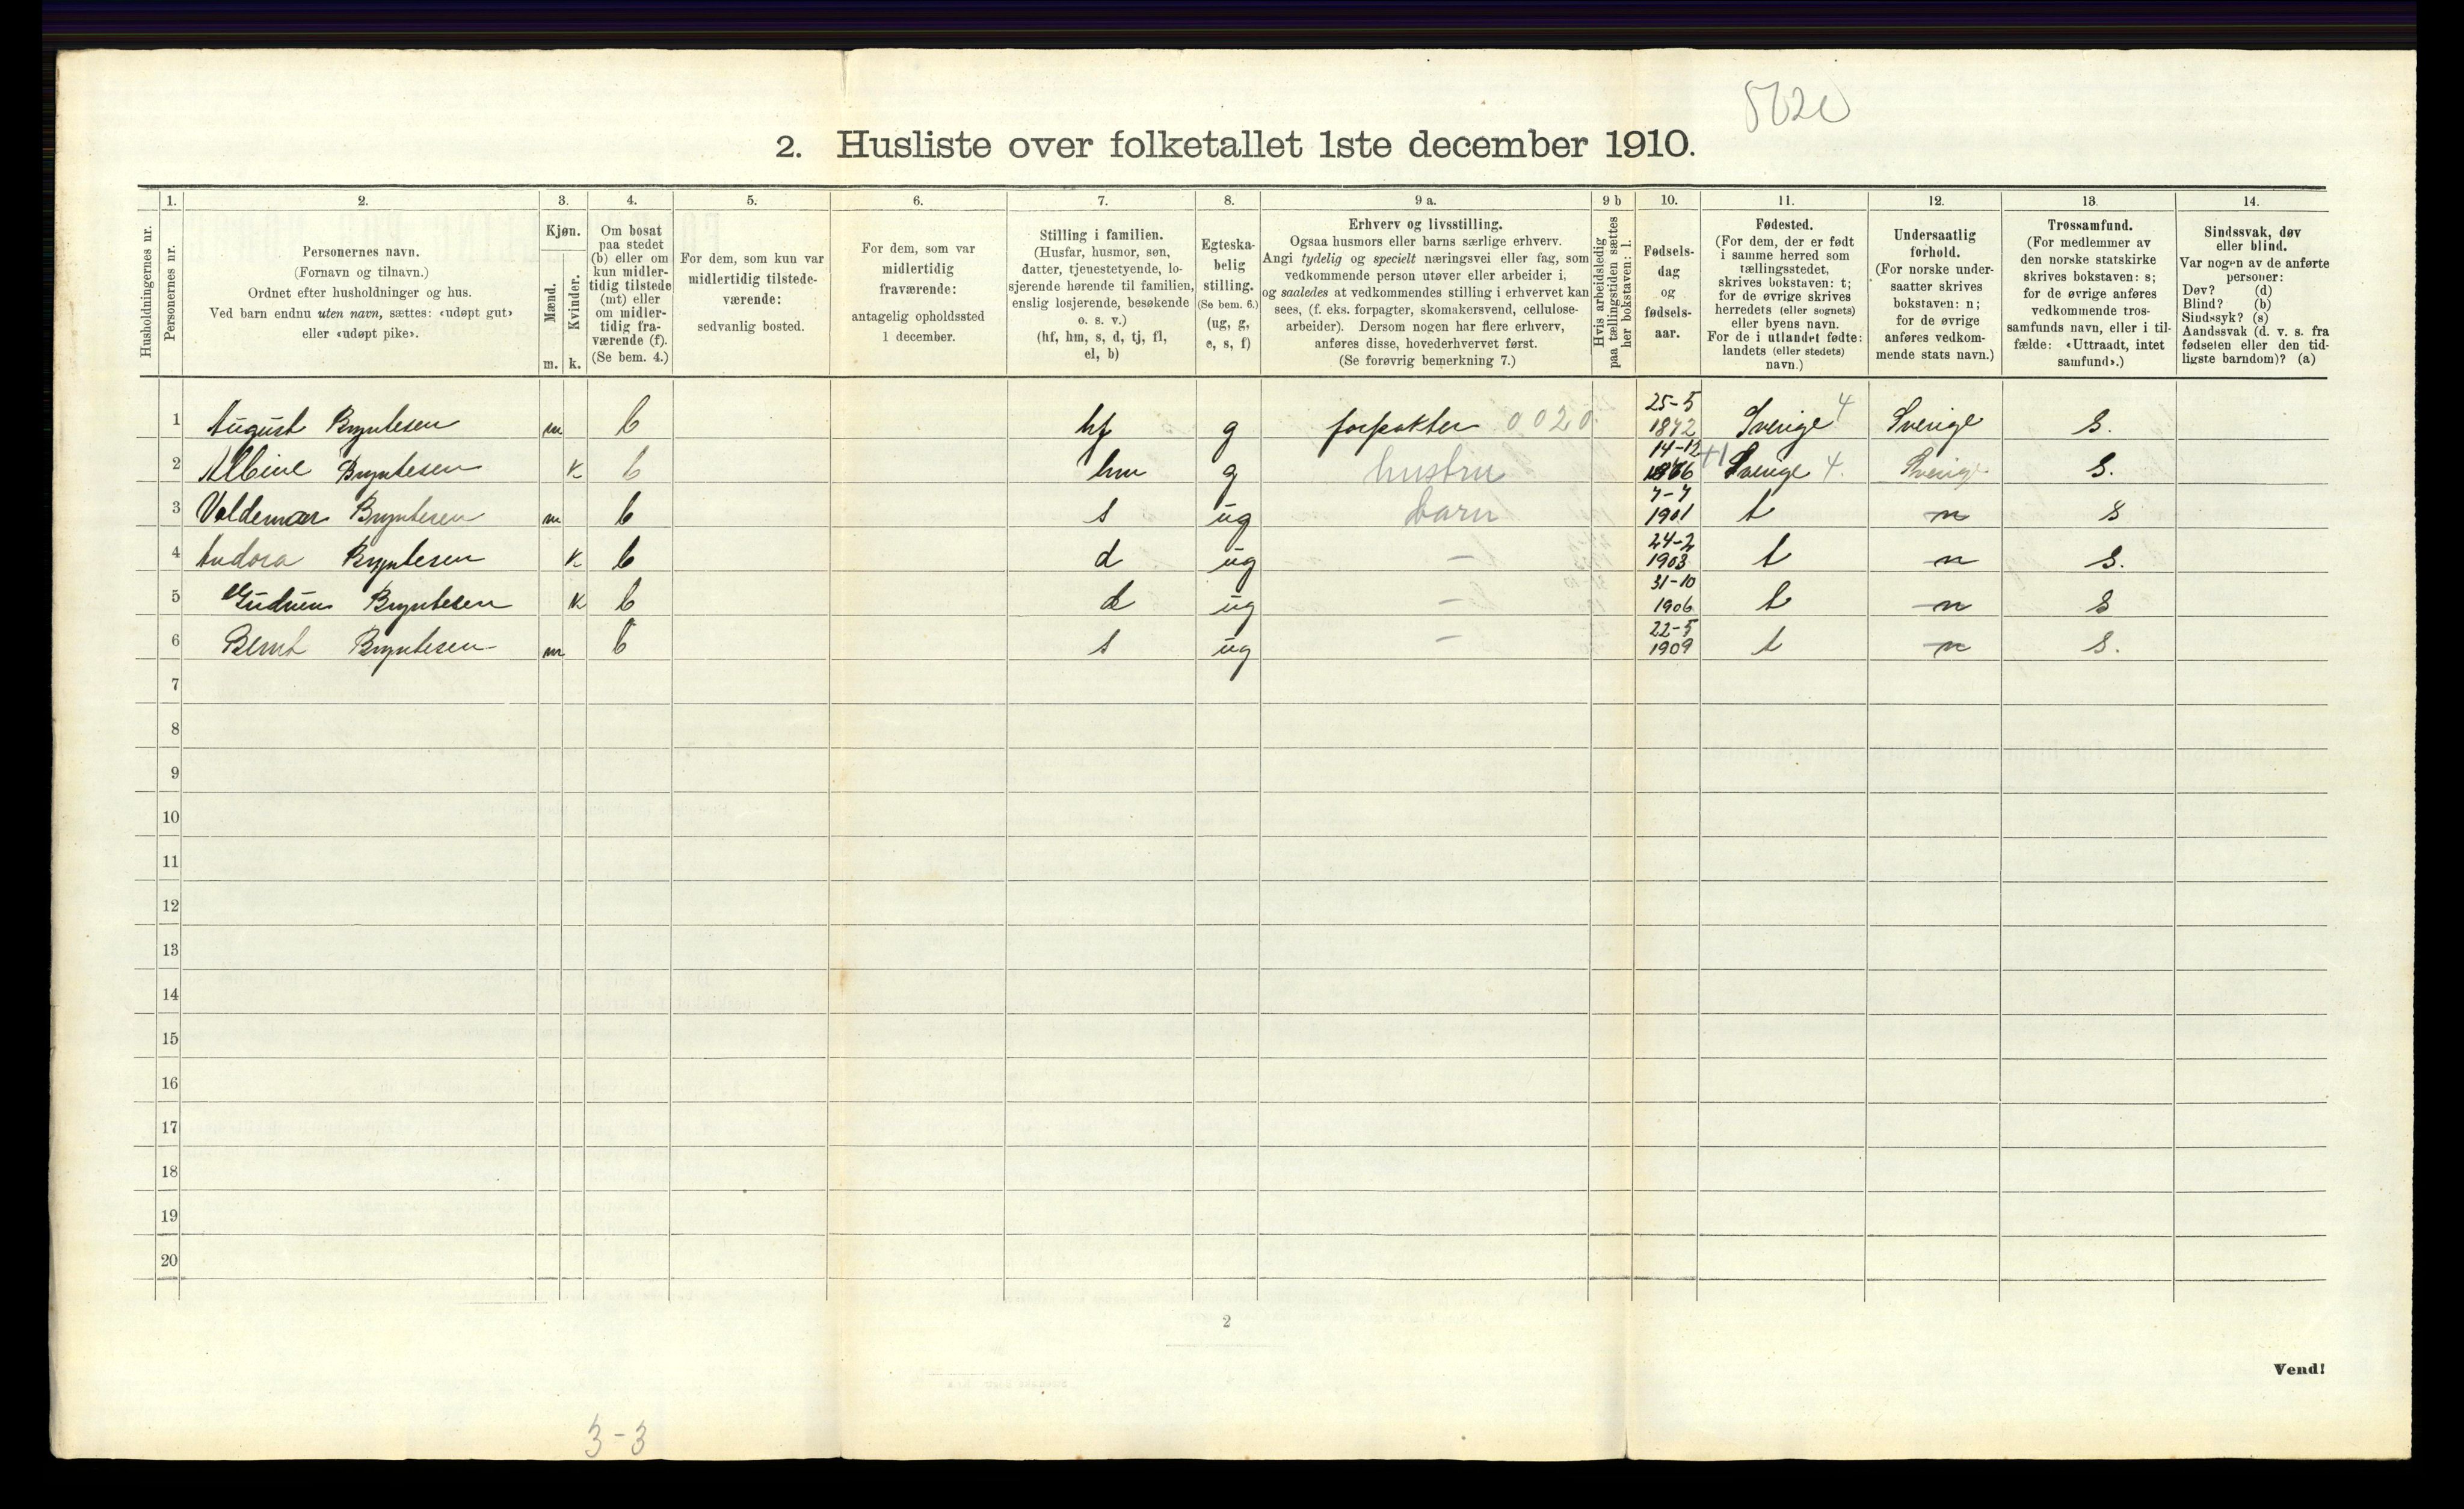 5020
2. Husliste over folketallet 1ste december 1910.
Husholdningernes nr.
1. Personernes nr.
2. Personernes navn.
(Fornavn og tilnavn.)
Ordnet efter husholdninger og hus.
Ved barn endnu uten navn, sættes: «udøpt gut»
eller «udøpt pike».
3. Kjøn.
Mænd. m.
Kvinder. k.
4. Om bosat
paa stedet
(b) eller om
kun midler-
tidig tilstede
(mt) eller
om midler-
tidig fra-
værende (f).
(Se bem. 4.)
5. For dem, som kun var
midlertidig tilstede-
værende:
sedvanlig bosted.
6. For dem, som var
midlertidig
fraværende:
antagelig opholdssted
1 december.
7. Stilling i familien.
(Husfar, husmor, søn,
datter, tjenestetyende, lo-
sjerende hørende til familien,
enslig losjerende, besøkende
o. s. v.)
(hf, hm, s, d, tj, fl,
el, b)
8. Egteska-
belig
stilling.
(Se bem. 6.)
(ug, g,
e, s, f)
9 a. Erhverv og livsstilling.
Ogsaa husmors eller barns særlige erhverv.
Angi tydelig og specielt næringsvei eller fag, som
vedkommende person utøver eller arbeider i,
og saaledes at vedkommendes stilling i erhvervet kan
sees, (f. eks. forpagter, skomakersvend, cellulose-
arbeider). Dersom nogen har flere erhverv,
anføres disse, hovederhvervet først.
(Se forøvrig bemerkning 7.)
9 b Hvis arbeidsledig
paa tællingstiden sættes
her bokstaven: l.
10. Fødsels-
dag
og
fødsels-
aar.
11. Fødested.
(For dem, der er født
i samme herred som
tællingsstedet,
skrives bokstaven: t;
for de øvrige skrives
herredets (eller sognets)
eller byens navn.
For de i utlandet fødte:
landets (eller stedets)
navn.)
12. Undersaatlig
forhold.
(For norske under-
saatter skrives
bokstaven: n;
for de øvrige
anføres vedkom-
mende stats navn.)
13. Trossamfund.
(For medlemmer av
den norske statskirke
skrives bokstaven: s;
for de øvrige anføres
vedkommende tros-
samfunds navn, eller i til-
fælde: «Uttraadt, intet
samfund».)
14. Sindssvak, døv
eller blind.
Var nogen av de anførte
personer:
Døv? (d)
Blind? (b)
Sindssyk? (s)
Aandssvak (d. v. s. fra
fødselen eller den tid-
ligste barndom)? (a)
1 August Bryntesen m b hf g forpakter 0020 25-5 1872 Sverige 4 Sverige S.
2 Albine Bryntesen k b hm g hustru 14-12 1876 Sverige 4. Sverige S.
3 Valdemar Bryntesen m b s ug barn 7-7 1901 t n S
4 Andora Bryntesen k b d ug - 24-2 1903 t n S.
5 Gudrun Bryntesen k b d ug - 31-10 1906 t n S
6 Bernt Bryntesen m b s ug - 22-5 1909 t n S.
7
8
9
10
11
12
13
14
15
16
17
18
19
20
2
Vend!
3-3